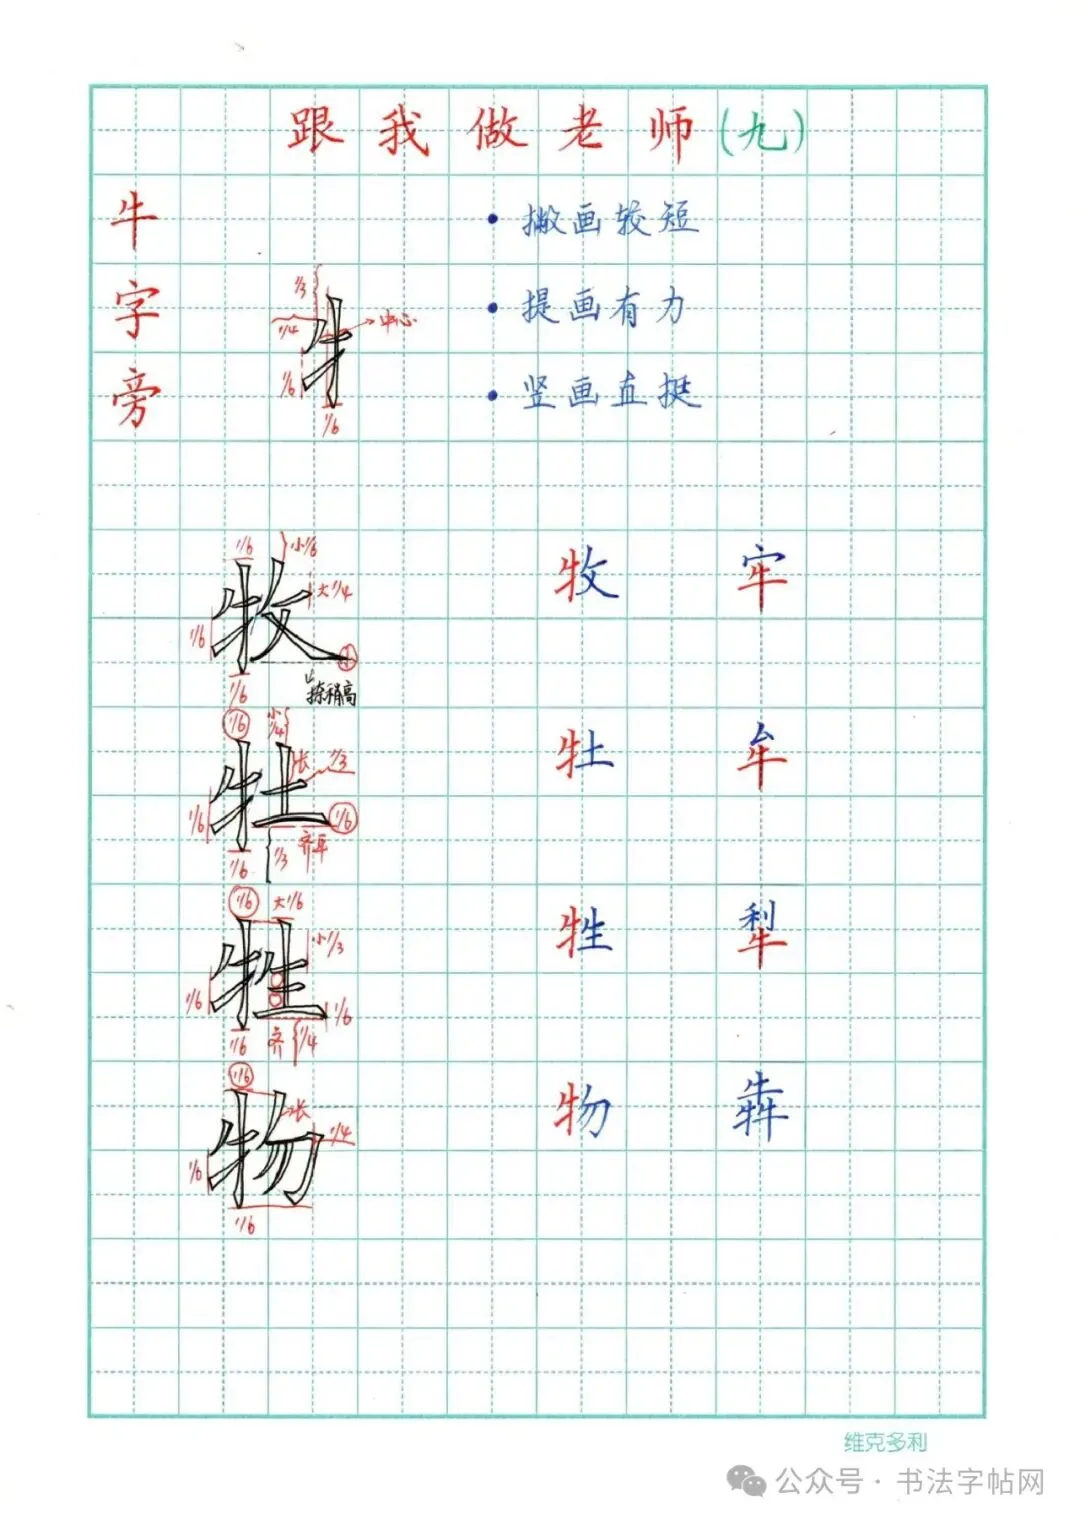 跟我做老师(九)
牛字旁
• 撇画较短
• 提画有力
• 竖画直挺
1/3
1/4
中心
1/6
1/6
1/6
小1/6
大1/4
1/6
小
1/6
捺稍高
牧 牢
1/6
小1/4
长
1/3
1/6
1/6
齐平
1/6
1/3
牡 牟
1/6
大1/6
小1/3
1/6
1/6
1/6
齐
1/4
牲 犁
1/6
长
1/4
1/6
1/6
物 犇
维克多利
公众号·书法字帖网